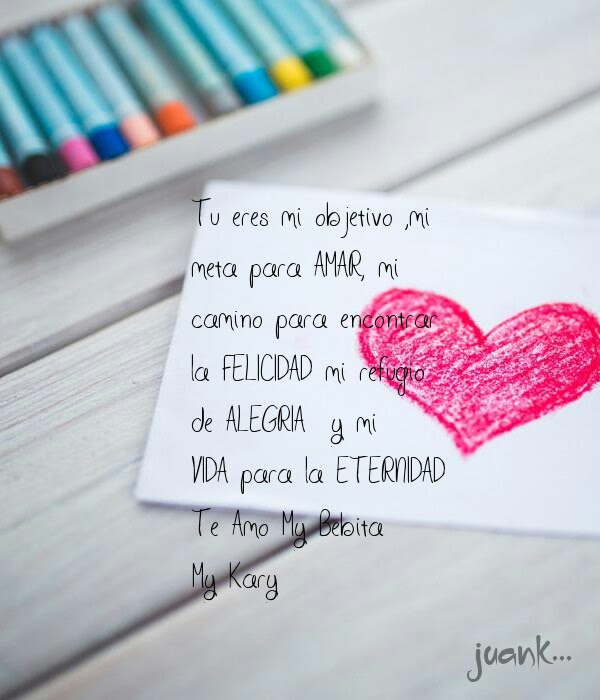 Tu eres mi objetivo ,mi
meta para AMAR, mi
camino para encontrar
la FELICIDAD mi refugio
de ALEGRIA y mi
VIDA para la ETERNIDAD
Te Amo My Bebita
My Kary
juank...